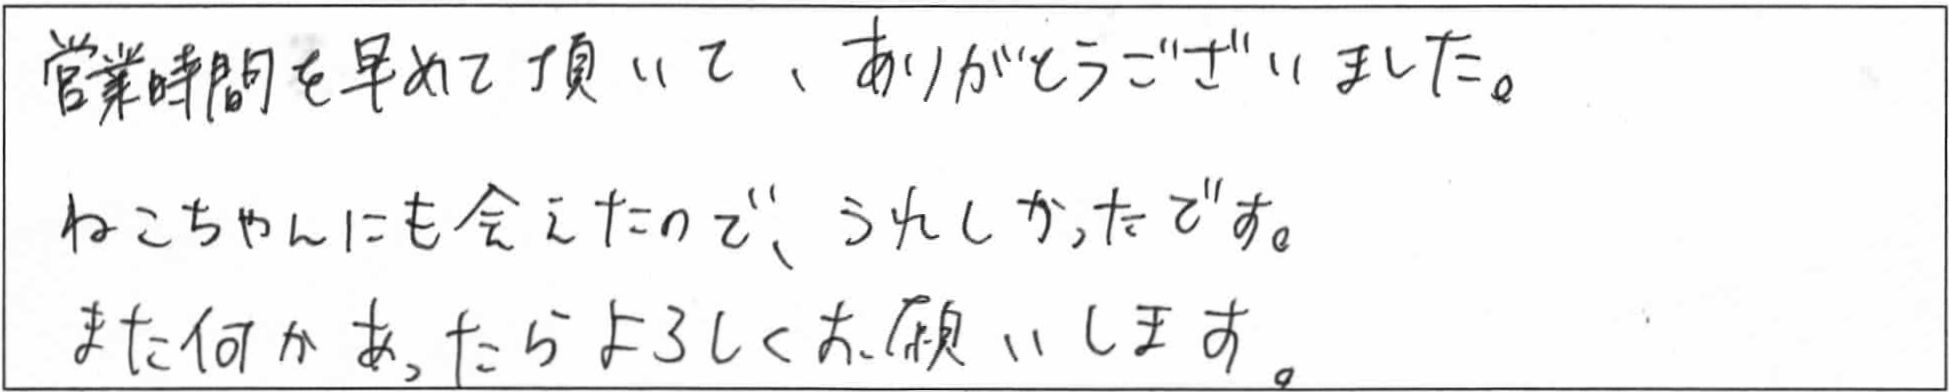 営業時間を早めて頂いて、ありがとうございました。
ねこちゃんにも会えたので、うれしかったです。
また何かあったらよろしくお願いします。